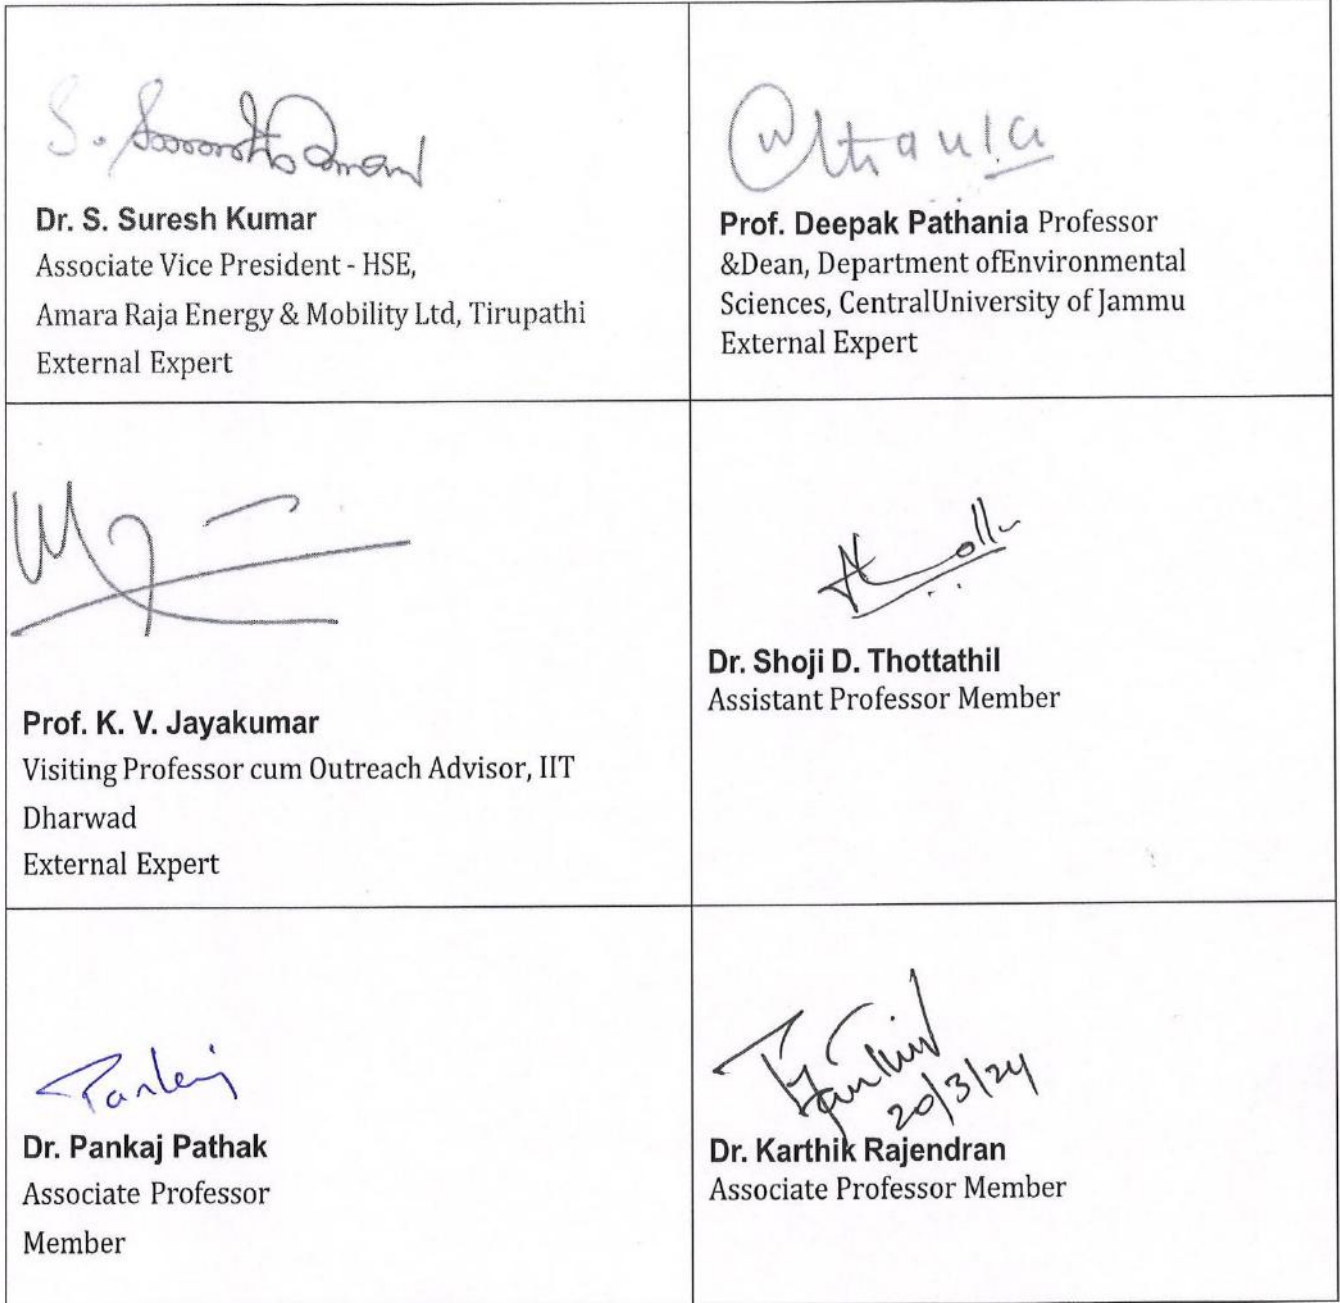 Dr. S. Suresh Kumar
Associate Vice President - HSE,
Amara Raja Energy & Mobility Ltd, Tirupathi
External Expert
Prof. Deepak Pathania Professor
&Dean, Department ofEnvironmental
Sciences, CentralUniversity of Jammu
External Expert
Prof. K. V. Jayakumar
Visiting Professor cum Outreach Advisor, IIT
Dharwad
External Expert
Dr. Shoji D. Thottathil
Assistant Professor Member
Pankaj
Dr. Pankaj Pathak
Associate Professor
Member
20/3/24
Dr. Karthik Rajendran
Associate Professor Member